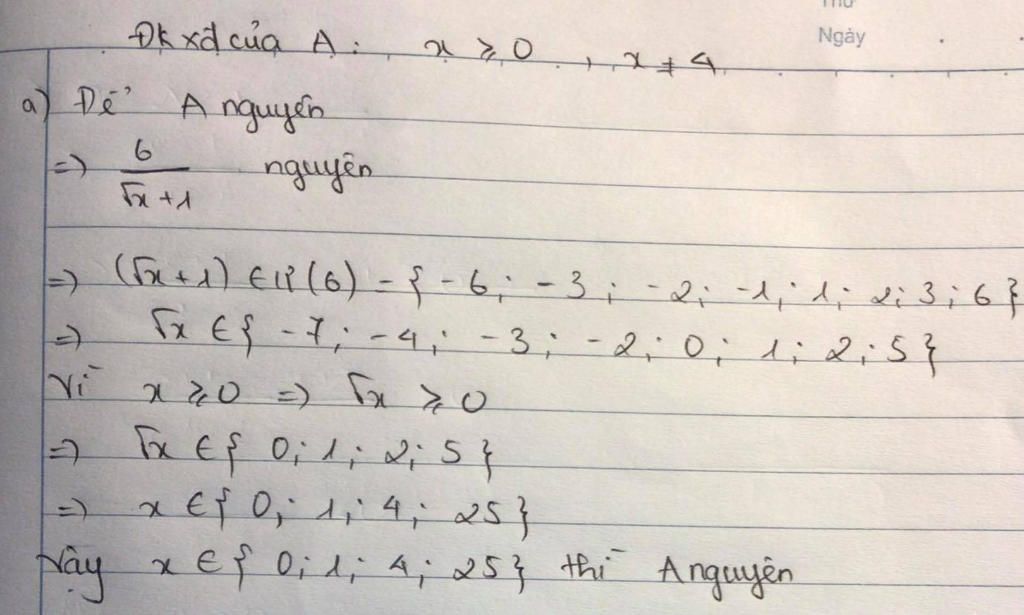 Thứ
Ngày
Đk xđ của A: x ⩾ 0, x ≠ 4
a) Để A nguyên
=> 6/(√x + 1) nguyên
=> (√x + 1) ∈ Ư(6) = {-6; -3; -2; -1; 1; 2; 3; 6}
=> √x ∈ {-7; -4; -3; -2; 0; 1; 2; 5}
Vì x ⩾ 0 => √x ⩾ 0
=> √x ∈ {0; 1; 2; 5}
=> x ∈ {0; 1; 4; 25}
Vậy x ∈ {0; 1; 4; 25} thì A nguyên